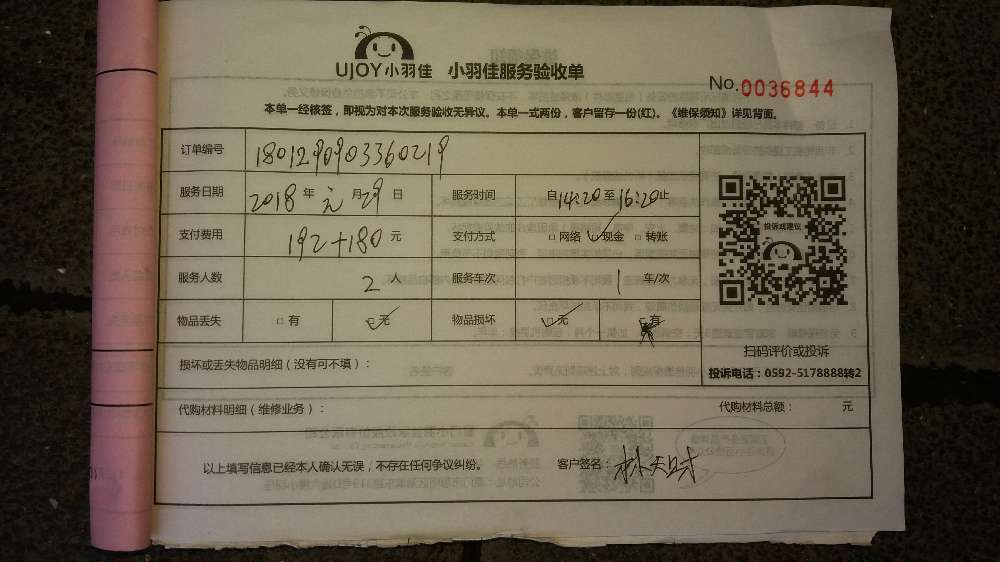 UJOY小羽佳 小羽佳服务验收单
No.0036844
本单一经核签，即视为对本次服务验收无异议。本单一式两份，客户留存一份(红)。《维保须知》详见背面。
订单编号 1801290903360219
服务日期 2018年元月29日 服务时间 自14:20至16:20止
支付费用 192+180元 支付方式 □网络 □现金 □转账
服务人数 2人 服务车次 1车/次
物品丢失 □有 □无 物品损坏 □无 □有
投诉或建议
扫码评价或投诉
投诉电话：0592-5178888转2
损坏或丢失物品明细（没有可不填）：
代购材料明细（维修业务）： 代购材料总额： 元
以上填写信息已经本人确认无误，不存在任何争议纠纷。 客户签名：